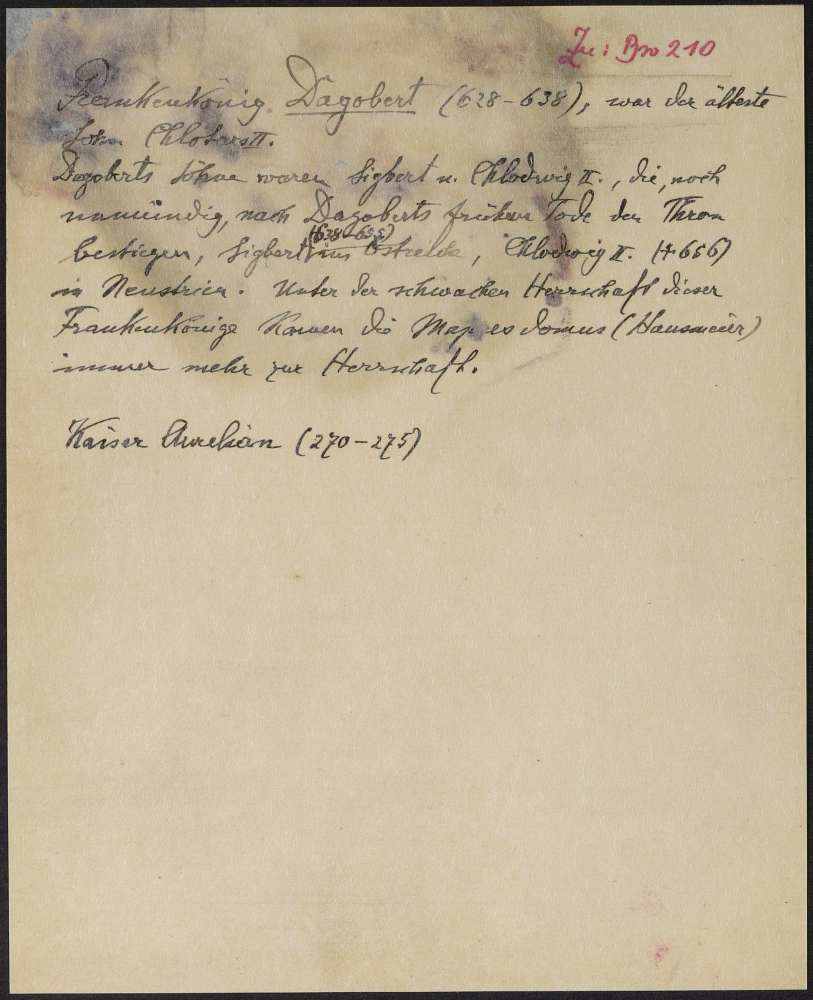 Zu: Bro 210
Frankenkönig Dagobert (628-638), war der älteste
Sohn Chlotars II.
Dagoberts Söhne waren Sigbert u. Chlodwig II., die, noch
unmündig, nach Dagoberts frühem Tode den Thron
bestiegen, Sigbert (638-655) in Ostreich, Chlodwig II. (+656)
in Neustrien. Unter der schwachen Herrschaft dieser
Frankenkönige kamen die Majores domus (Hausmeier)
immer mehr zur Herrschaft.
Kaiser Aurelian (270-275)